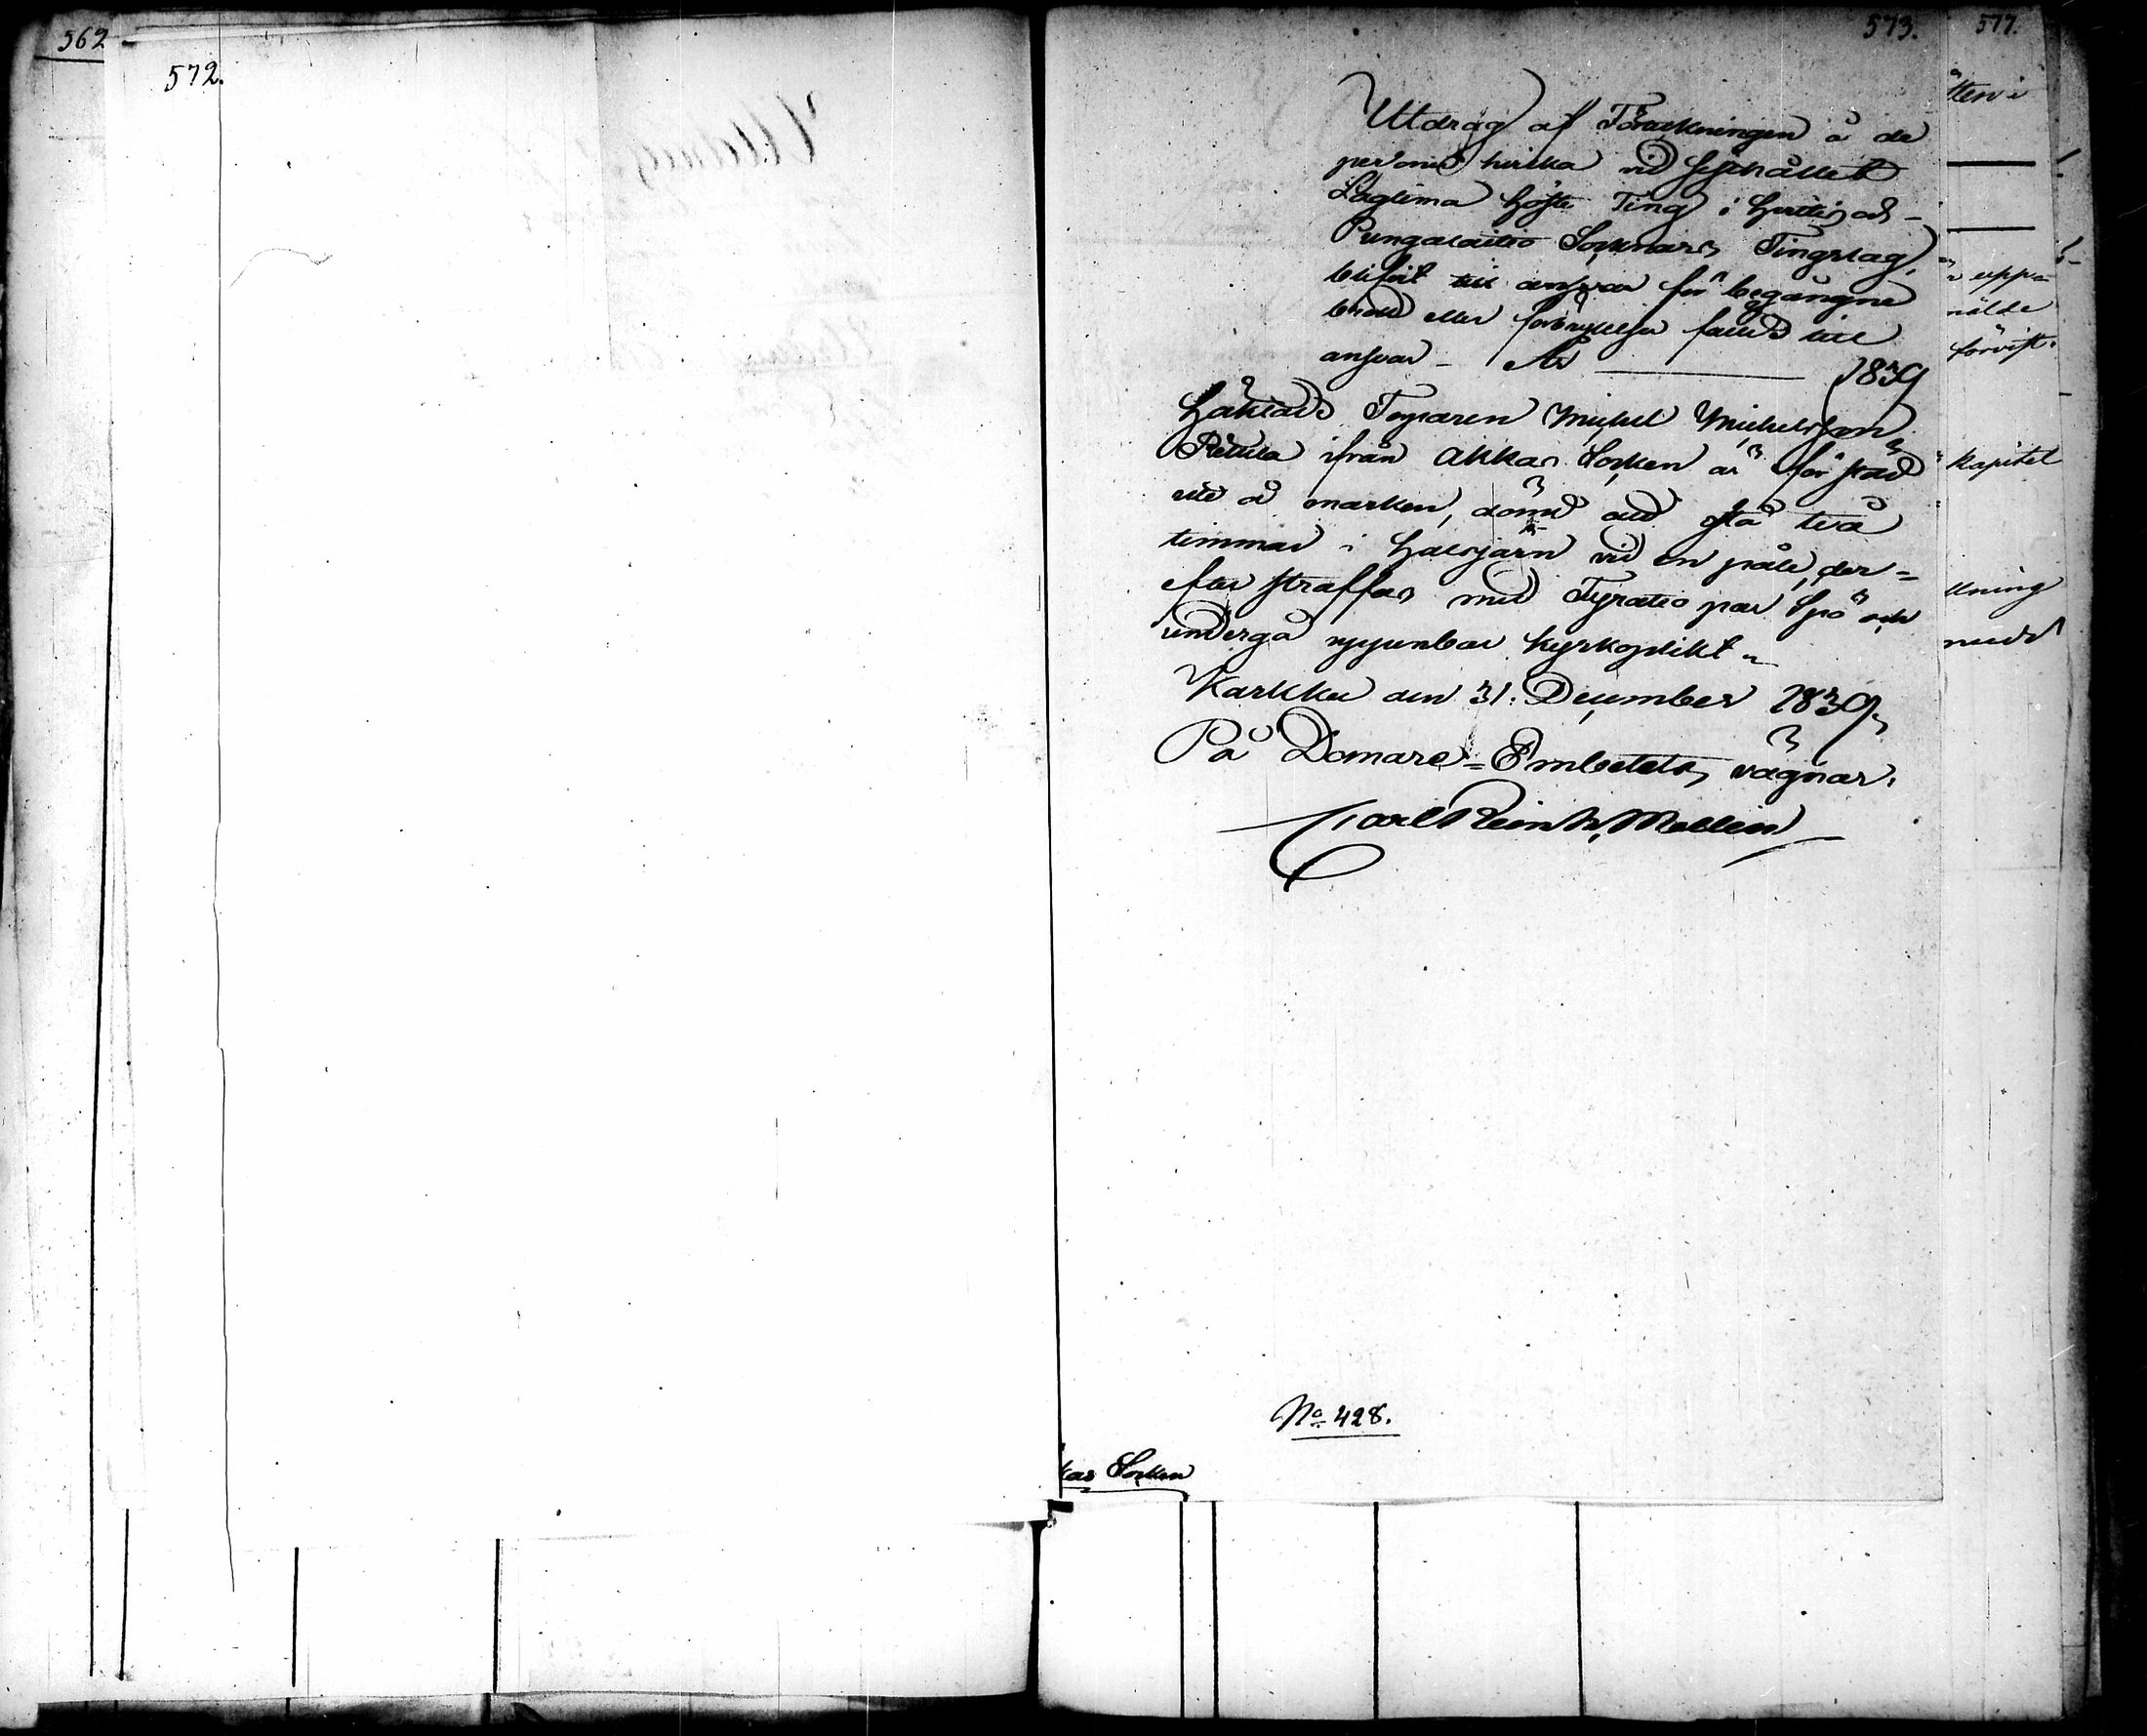 562
572.
573.
577.
Utdrag af Förteckningen å de
personer hvilka vid sisthållet
Lagtima Höste Ting i Huittis och
Pungalaitio Soknars Tingslag,
blifvit till ansvar för begångne
brott eller förbrytelser fälld till
ansvar – År ——— 1839
Häktade Torparen Michel Michelsson
Retula ifrån Akkas Socken är för stöld
ute å marken, dömd att stå två
timmar i halsjärn vid en påle, der=
efter straffas med Fyratio par Spö och
undergå uppenbar kyrkoplikt
Karkku den 31. December 1839.
På Domare=Embetets vägnar.
Carl Reinh. Mollin
No. 428.
kas Socken
tten i
upp=
nälde
förvist.
Kapitel
kning